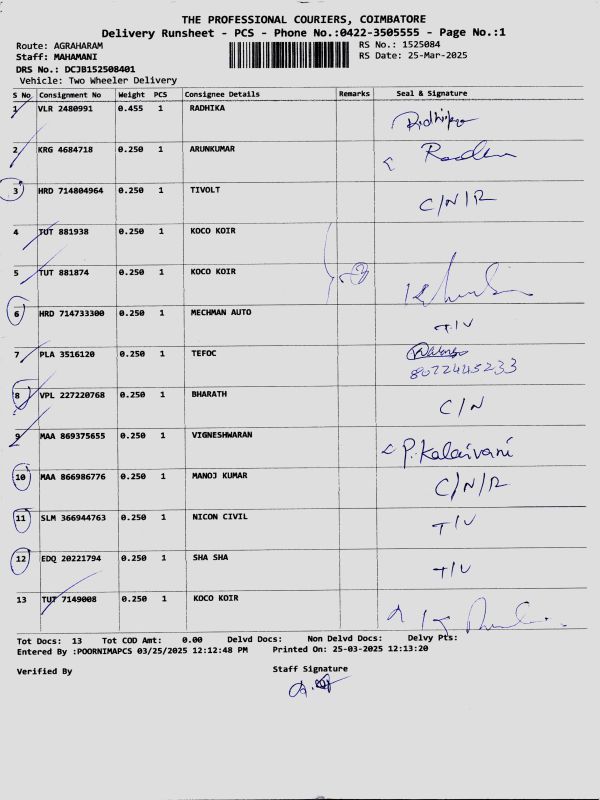 THE PROFESSIONAL COURIERS, COIMBATORE
Delivery Runsheet - PCS - Phone No.:0422-3505555 - Page No.:1
Route: AGRAHARAM RS No.: 1525084
Staff: MAHAMANI RS Date: 25-Mar-2025
DRS No.: DCJB152508401
Vehicle: Two Wheeler Delivery
S No. Consignment No Weight PCS Consignee Details Remarks Seal & Signature
1 VLR 2480991 0.455 1 RADHIKA
2 KRG 4684718 0.250 1 ARUNKUMAR
3 HRD 714804964 0.250 1 TIVOLT C/N/R
4 TUT 881938 0.250 1 KOCO KOIR
5 TUT 881874 0.250 1 KOCO KOIR
6 HRD 714733300 0.250 1 MECHMAN AUTO T/V
7 PLA 3516120 0.250 1 TEFOC
8072445233
8 VPL 227220768 0.250 1 BHARATH C/N
9 MAA 869375655 0.250 1 VIGNESHWARAN P. Kalaivani
10 MAA 866986776 0.250 1 MANOJ KUMAR C/N/R
11 SLM 366944763 0.250 1 NICON CIVIL T/V
12 EDQ 20221794 0.250 1 SHA SHA T/V
13 TUT 7149008 0.250 1 KOCO KOIR
Tot Docs: 13 Tot COD Amt: 0.00 Delvd Docs: Non Delvd Docs: Delvy Pts:
Entered By :POORNIMAPCS 03/25/2025 12:12:48 PM Printed On: 25-03-2025 12:13:20
Verified By Staff Signature